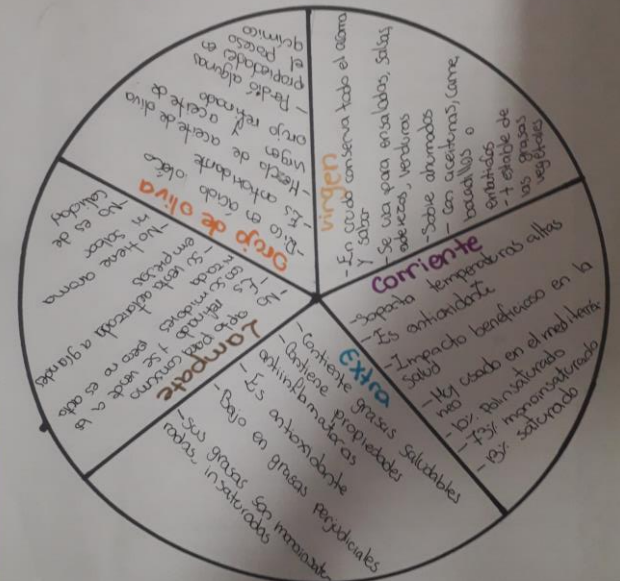 virgen
- En crudo conserva todo el aroma
y sabor
- Se usa para ensaladas, salsas,
aderezos, verduras
- Sobre ahumados
- Con aceitunas, carne,
bocadillos o
- + estable de
las grasas
vegetales
Corriente
- Soporta temperaturas altas
- Es antioxidante
- Impacto beneficioso en la
salud
- Muy usado en el mediterrá-
neo
- 10% Poliinsaturado
- 73% monoinsaturado
- 13% saturado
Extra
- Contiene grasas saludables
- Contiene propiedades
antiinflamatorias
- Es antioxidante
- Bajo en grasas perjudiciales
- Sus grasas son monoinsatu-
radas_ insaturadas
Lampate
- No apto para consumo
- Es refinado + se vende a la
pero no es apto
- Se vende autorizada a grandes
empresas
- No tiene aroma
ni sabor
- No es de
calidad
Orujo de oliva
- Rico en ácido
- Es antioxidante
Mezcla de aceite de oliva
virgen y aceite de
orujo refinado
- Perdió algunas
propiedades en
el proceso
químico